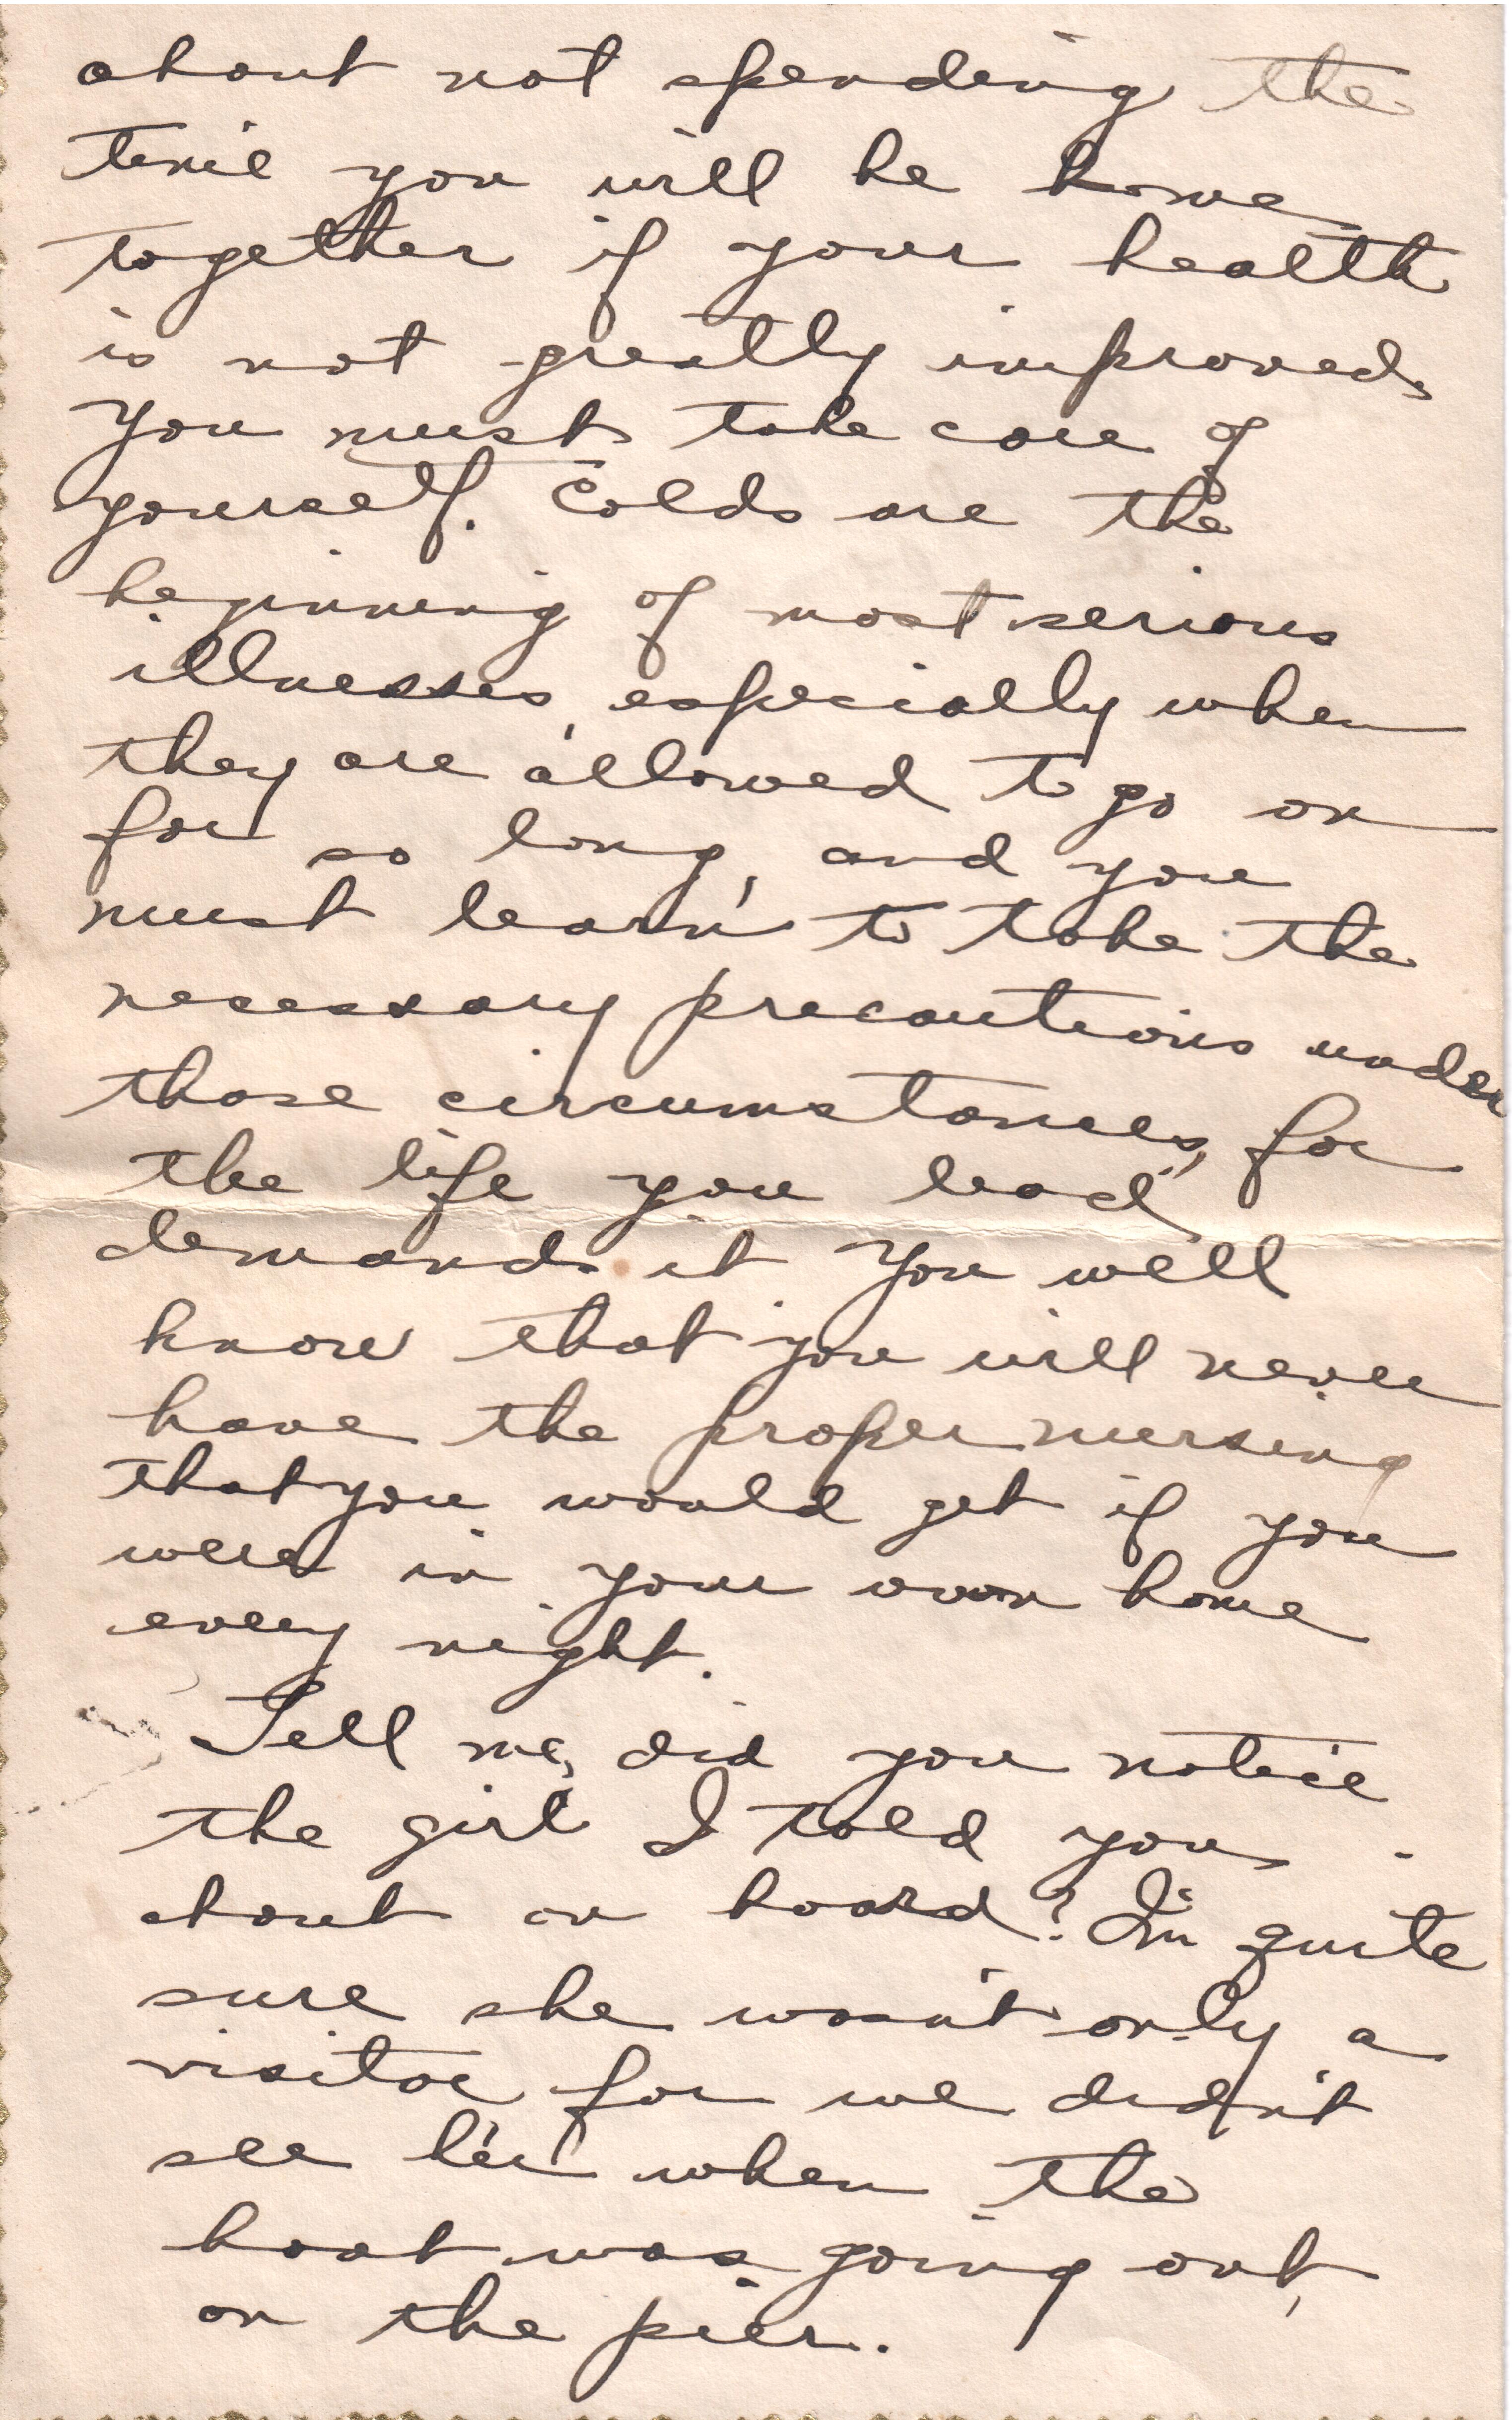 about not spending the
time you will be home
together if your health
is not greatly improved,
You must take care of
yourself. Colds are the
beginning of most serious
illnesses, especially when
they are allowed to go on
for so long, and you
must learn to take the
necessary precautions under
those circumstances, for
the life you lead
demands it. You well
know that you will never
have the proper nursing
that you would get if you
were in your own home
every night.
Tell me, did you notice
the girl I told you
about on board? I'm quite
sure she wasn't only a
visitor for we didn't
see her when the
boat was going out,
on the pier.